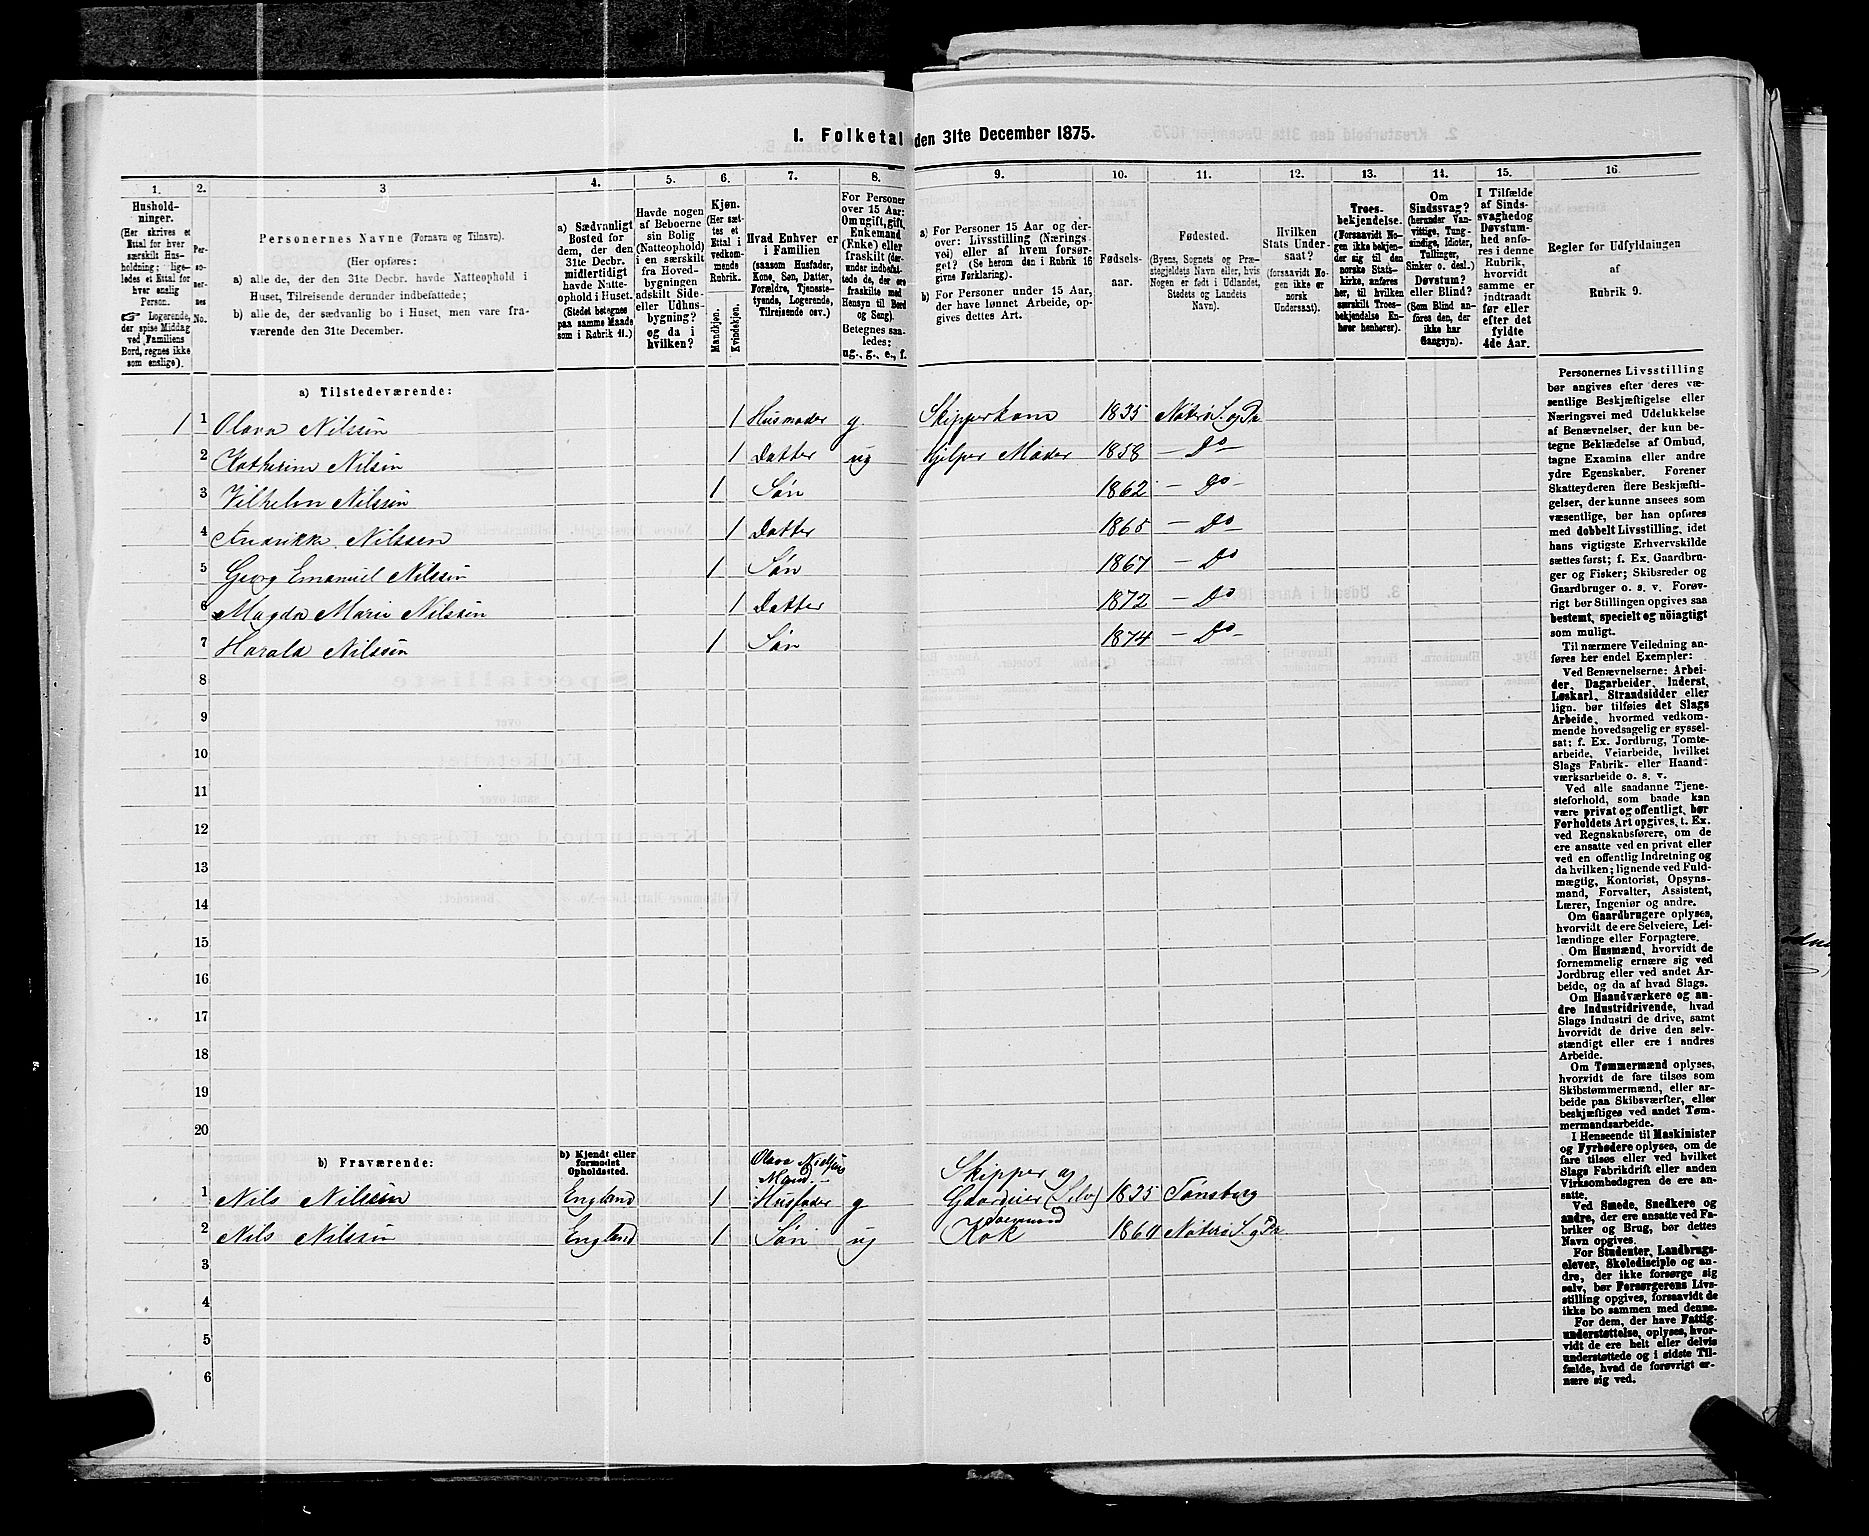 1. Folketal den 31te December 1875.
1.
Hushold-
ninger.
(Her skrives et
Ettal for hver
særskilt Hus-
holdning; lige-
ledes et Ettal for
hver enslig
Person.
☞ Logerende,
der spise Middag
ved Familiens
Bord, regnes ikke
som enslige).
2.
Per-
so-
ner-
nes
No.
3
Personernes Navne (Fornavn og Tilnavn).
(Her opføres:
a) alle de, der den 31te Decbr. havde Natteophold i
Huset, Tilreisende derunder indbefattede;
b) alle de, der sædvanlig bo i Huset, men vare fra-
værende den 31te December.
4.
a) Sædvanligt
Bosted for
dem, der den
31te Decbr.
midlertidigt
havde Natte-
ophold i Huset.
(Stedet betegnes
paa samme Maade
som i Rubrik 11.)
5.
Havde nogen
af Beboerne
sin Bolig
(Natteophold)
i en særskilt
fra Hoved-
bygningen
adskilt Side-
eller Udhus-
bygning?
og da i
hvilken?
6.
Kjøn.
(Her sæt-
tes et
Ettal i
vedkom-
mende
Rubrik.
Mandkjøn.
Kvindekjøn.
7.
Hvad Enhver er
i Familien
(saasom Husfader,
Kone, Søn, Datter,
Forældre, Tjeneste-
tyende, Logerende,
Tilreisende osv.)
8.
For Personer
over 15 Aar:
Om ugift, gift,
Enkemand
(Enke) eller
fraskilt (der-
under indbefat-
tede de, der ere
fraskilte med
Hensyn til Bord
og Seng).
Betegnes saa-
ledes:
ug., g., e., f.
9.
a) For Personer 15 Aar og der-
over: Livsstilling (Nærings-
vei) eller af hvem forsør-
get? (Se herom den i Rubrik 16
givne Forklaring).
b) For Personer under 15 Aar,
der have lønnet Arbeide, op-
gives dettes Art.
10.
Fødsels-
aar.
11.
Fødested.
(Byens, Sognets og Præ-
stegjeldets Navn eller, hvis
Nogen er født i Udlandet,
Stedets og Landets
Navn).
12.
Hvilken
Stats Under-
saat?
(forsaavidt No-
gen ikke er
norsk
Undersaat).
13.
Troes-
bekjendelse.
(Forsaavidt No-
gen ikke bekjen-
der sig til den
norske Stats-
kirke, anføres
her, til hvilken
særskilt Troes-
bekjendelse En-
hver henhører).
14.
Om
Sindssvag?
(herunder Van-
vittige, Tung-
sindige, Idioter,
Tullinger,
Sinker o. desl.)
Døvstum?
eller Blind?
(Som Blind an-
føres den, der
ikke har
Gangsyn).
15.
I Tilfælde
af Sinds-
svaghed og
Døvstum-
hed anfø-
res i denne
Rubrik,
hvorvidt
samme er
indtraadt
før eller
efter det
fyldte
4de Aar.
16.
Regler for Udfyldningen
af
Rubrik 9.
a) Tilstedeværende:
1 1 Olava Nilssen 1 Husmoder g Skipperkone 1835 Nøterø S. og Pr
2 Kathrine Nilsen 1 Datter ug hjelper Moder 1858 - Do
3 Vilhelm Nilssen 1 Søn 1862 - Do -
4 Nilssen 1 Datter 1865 - Do
5 Georg Emanuel Nilssen 1 Søn 1867 - Do
6 Magda Marie Nilssen 1 Datter 1872 - Do
7 Harald Nilssen 1 Søn 1874 - Do -
8
9
10
11
12
13
14
15
16
17
18
19
20
b) Fraværende:
b) Kjendt eller
formodet
Opholdssted.
1 Nils Nilssen England 1 Olava Nielsens Mand - Husfader g Skipper og Gaardeier (Selv) 1835 Tønsberg
2 Nils Nilssen England 1 Søn ug Kok 1860 Nøterø S. og Pr.
3
4
5
6
Personernes Livsstilling
bør angives efter deres væ-
sentlige Beskjæftigelse eller
Næringsvei med Udelukkelse
af Benævnelser, der kun be-
tegne Beklædelse af Ombud,
tagne Examina eller andre
ydre Egenskaber. Forener
Skatteyderen flere Beskjæfti-
gelser, der kunne ansees som
væsentlige, bør han opføres
med dobbelt Livsstilling, idet
hans vigtigste Erhvervskilde
sættes først; f. Ex. Gaardbru-
ger og Fisker; Skibsreder og
Gaardbruger o. s. v. Forøv-
rigt bør Stillingen opgives saa
bestemt, specielt og nöiagtigt
som muligt.
Til nærmere Veiledning an-
føres her endel Exempler:
Ved Benævnelserne: Arbei-
der, Dagarbeider, Inderst,
Løskarl, Strandsidder eller
lign. bør tilføies det Slags
Arbeide, hvormed vedkom-
mende hovedsagelig er syssel-
sat; f. Ex. Jordbrug, Tomte-
arbeide, Veiarbeide, hvilket
Slags Fabrik- eller Haand-
værksarbeide o. s. v.
Ved alle saadanne Tjene-
steforhold, som baade kan
være privat og offentligt, bør
Forholdets Art opgives, t. Ex.
ved Regnskabsførere, om de
ere ansatte ved en privat eller
ved en offentlig Indretning og
da hvilken; lignende ved Fuld-
mægtig, Kontorist, Opsyns-
mand, Forvalter, Assistent,
Lærer, Ingeniør og andre.
Om Gaardbrugere oplyses,
hvorvidt de ere Selveiere, Lei-
lændinge eller Forpagtere.
Om Husmænd, hvorvidt de
fornemmelig ernære sig ved
Jordbrug eller ved andet Ar-
beide, og da af hvad Slags.
Om Haandværkere og an-
dre Industridrivende, hvad
Slags Industri de drive, samt
hvorvidt de drive den selv-
stændigt eller ere i andres
Arbeide.
Om Tømmermænd oplyses,
hvorvidt de fare tilsøs som
Skibstømmermænd, eller ar-
beide paa Skibsværfter, eller
beskjæftiges ved andet Tøm-
mermandsarbeide.
I Henseende til Maskinister
og Fyrbødere oplyses, om de
fare tilsøs eller ved hvilket
Slags Fabrikdrift eller anden
Virksomhedsgren de ere an-
satte.
Ved Smede, Snedkere og
andre, der ere ansatte ved Fa-
briker og Brug, bør dettes
Navn opgives.
For Studenter, Landbrugs-
elever, Skoledisciple og an-
dre, der ikke forsørge sig
selv, bør Forsørgerens Livs-
stilling opgives, forsaavidt de
ikke bo sammen med denne.
For dem, der have Fattig-
understøttelse, oplyses, hvor-
vidt de ere helt eller delvis
understøttede og i sidste Til-
fælde, hvad de forøvrigt er-
nære sig ved.